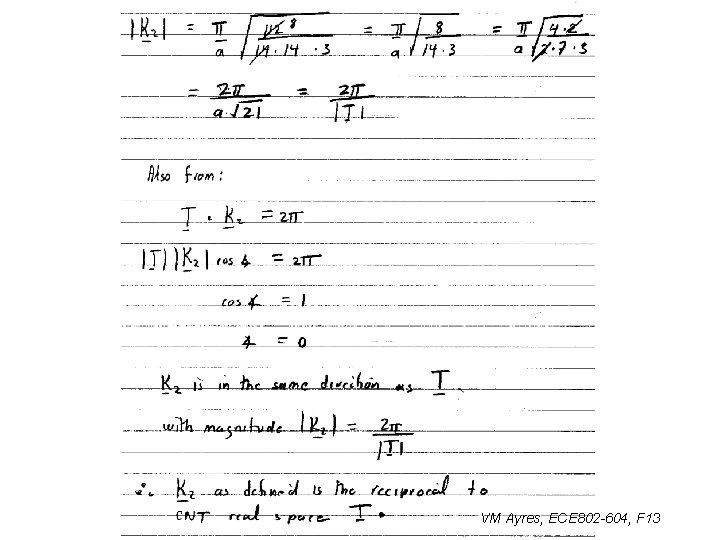 |K₂| = π/a √(112 8 / 14 · 14 · 3) = π/a √(8 / 14 · 3) = π/a √(4 · 2 / 2 · 7 · 3)
= 2π / a√21 = 2π / |T|
Also from:
T · K₂ = 2π
|T||K₂| cos ∡ = 2π
cos ∡ = 1
∡ = 0
K₂ is in the same direction as T
with magnitude |K₂| = 2π / |T|
∴ K₂ as defined is the reciprocal to
CNT real space T.
VM Ayres, ECE 802-604, F13